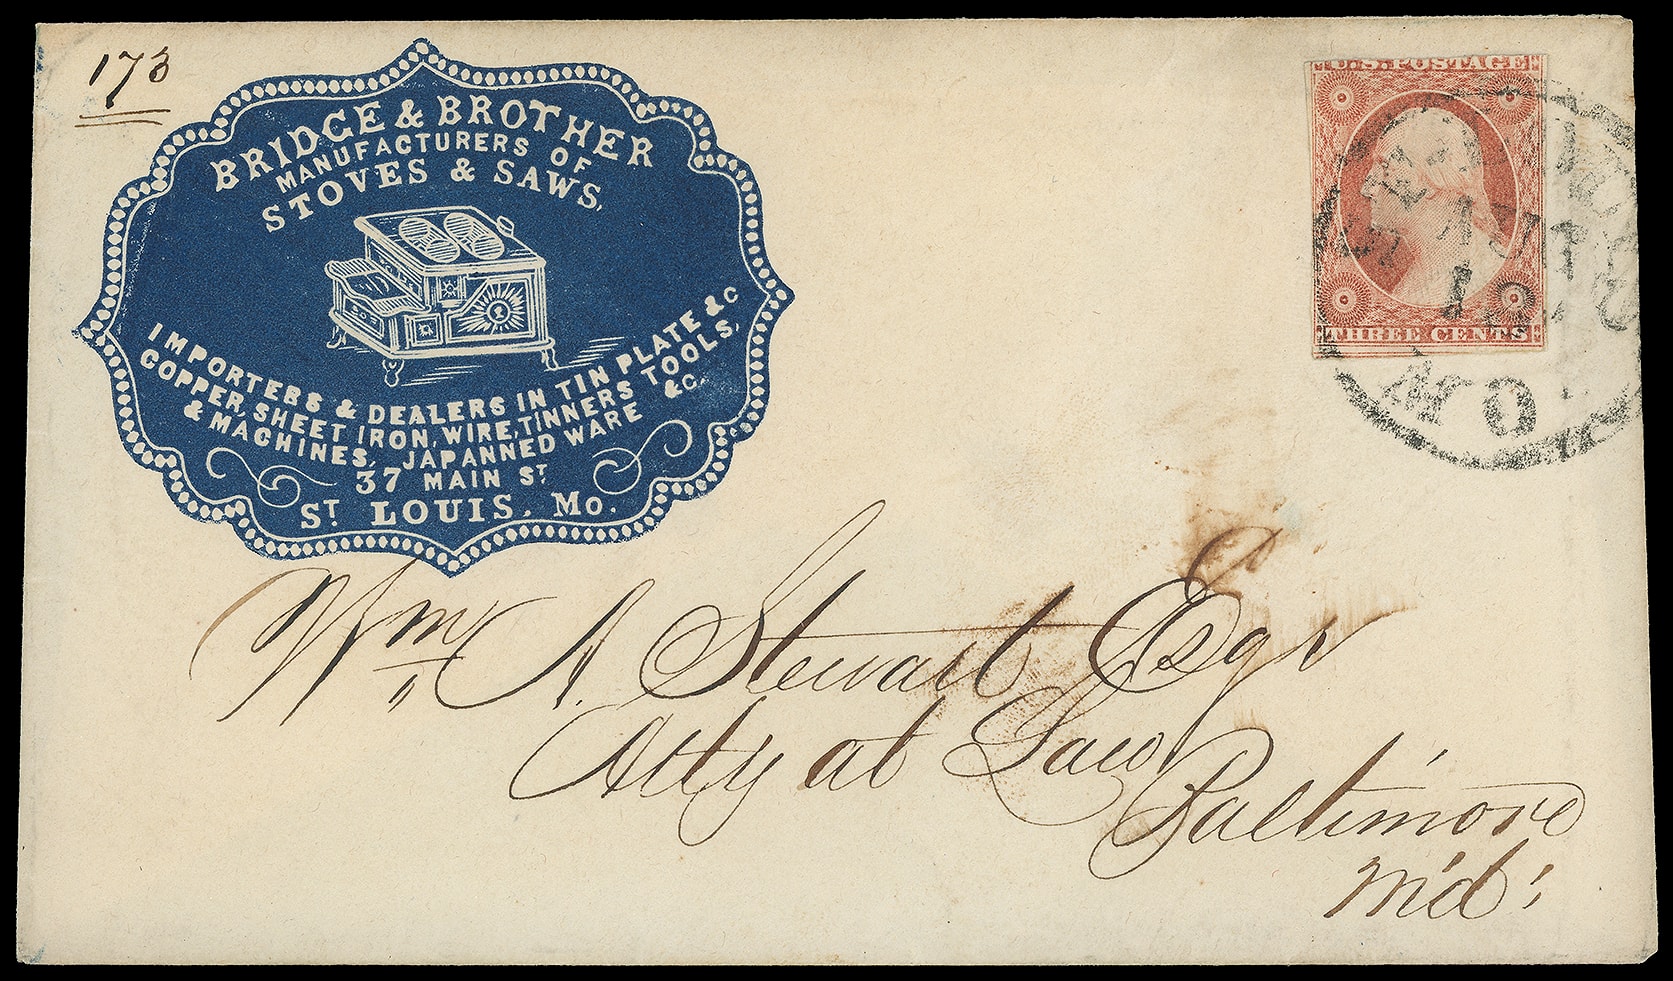 173
BRIDGE & BROTHER
MANUFACTURERS OF
STOVES & SAWS,
IMPORTERS & DEALERS IN TIN PLATE &c
COPPER, SHEET IRON, WIRE, TINNERS TOOLS,
& MACHINES, JAPANNED WARE &c.
37 MAIN ST.
ST LOUIS, Mo.
U.S. POSTAGE
THREE CENTS
ST. LOUIS
MO.
Wm A. Stewart Esqr
Atty at Law
Baltimore
Md.